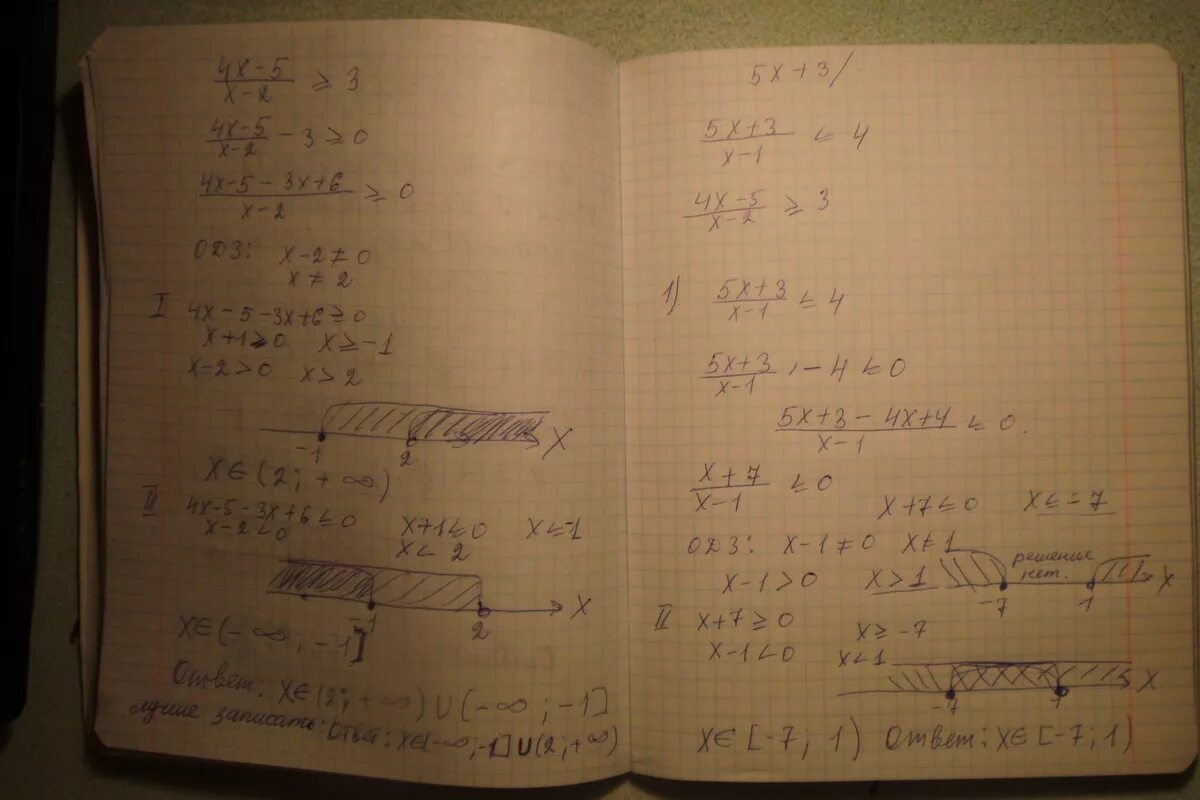 4x-5/x-2 ≥ 3
4x-5/x-2 - 3 ≥ 0
4x-5-3x+6/x-2 ≥ 0
ОДЗ: x-2≠0
x ≠ 2
I 4x-5-3x+6≥0
x+1≥0 x≥-1
x-2>0 x>2
-1 2 X
x∈(2; +∞)
II 4x-5-3x+6≤0 x+1≤0 x≤-1
x-2<0 x< 2
-1 2 X
x∈(-∞; -1]
Ответ: x∈(2; +∞) ∪ (-∞; -1]
лучше записать: Ответ: x∈(-∞; -1] ∪ (2; +∞)
5x+3/
5x+3/x-1 ≤ 4
4x-5/x-2 ≥ 3
1) 5x+3/x-1 ≤ 4
5x+3/x-1 - 4 ≤ 0
5x+3-4x+4/x-1 ≤ 0
x+7/x-1 ≤ 0
x+7≤0 x≤-7
ОДЗ: x-1≠0 x≠1
x-1>0 x>1
решение
нет.
-7 1 X
II x+7≥0 x≥-7
x-1<0 x<1
-7 X
x∈[-7; 1) Ответ: x∈[-7; 1)